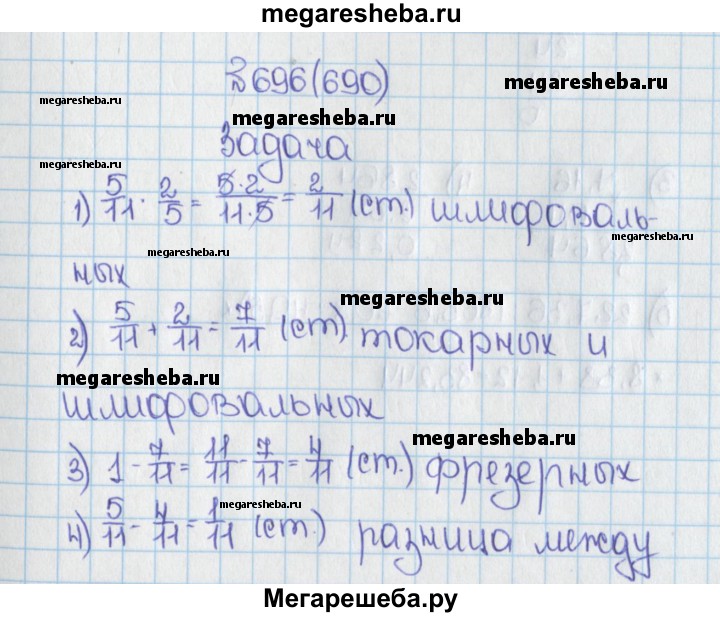 megaresheba.ru
№ 696 (690)
megaresheba.ru
megaresheba.ru
Задача
megaresheba.ru
1) 5/11 · 2/5 = 5·2/11·5 = 2/11 (ст.) шлифоваль-
megaresheba.ru
ных
megaresheba.ru
2) 5/11 + 2/11 = 7/11 (ст) токарных и
megaresheba.ru
шлифовальных
megaresheba.ru
3) 1 - 7/11 = 11/11 - 7/11 = 4/11 (ст.) фрезерных
megaresheba.ru
4) 5/11 - 4/11 = 1/11 (ст.) разница между
Мегарешеба.ру